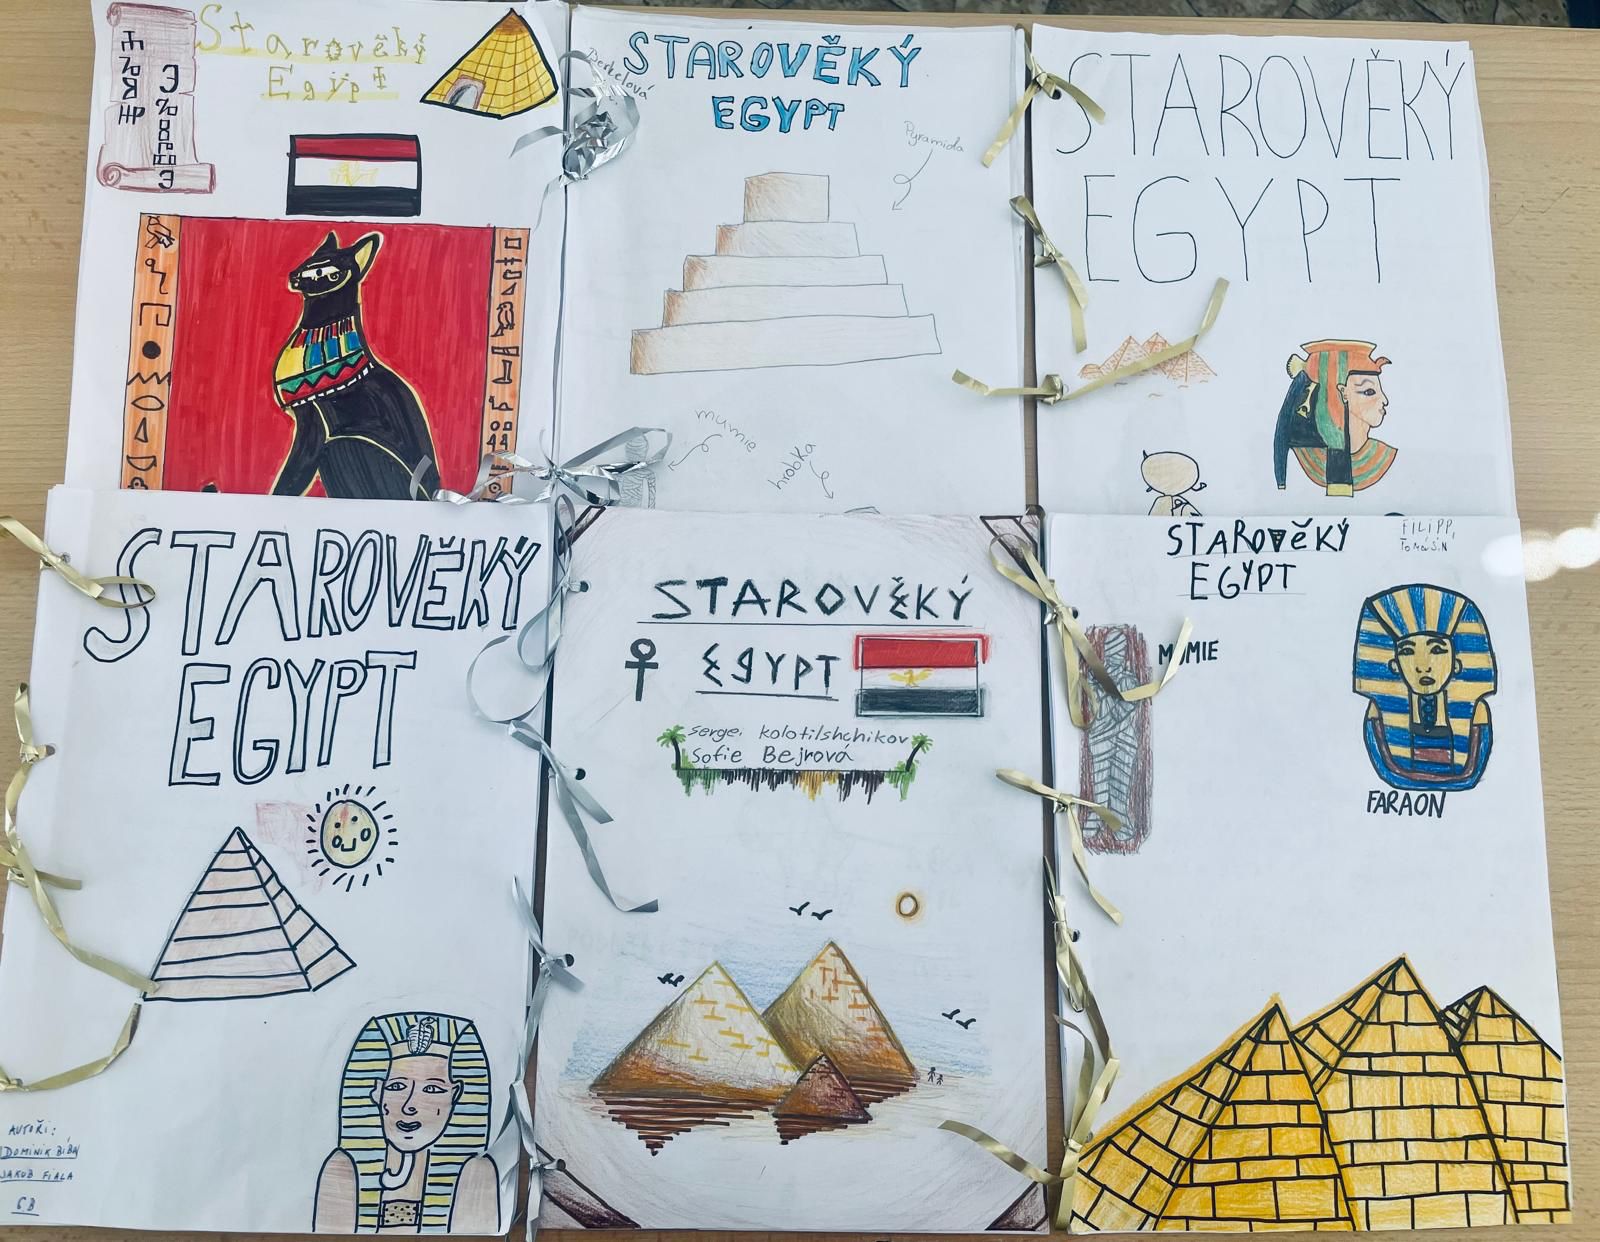 Starověký
Egypt
STAROVĚKÝ
EGYPT
Pyramida
mumie
hrobka
STAROVĚKÝ
EGYPT
STAROVĚKÝ
EGYPT
AUTOŘI:
DOMINIK
JAKUB FIALA
6.B
STAROVĚKÝ
EGYPT
sergei kolotilshchikov
Sofie Bejrová
STAROVĚKÝ
EGYPT
FILIPP,
MUMIE
FARAON